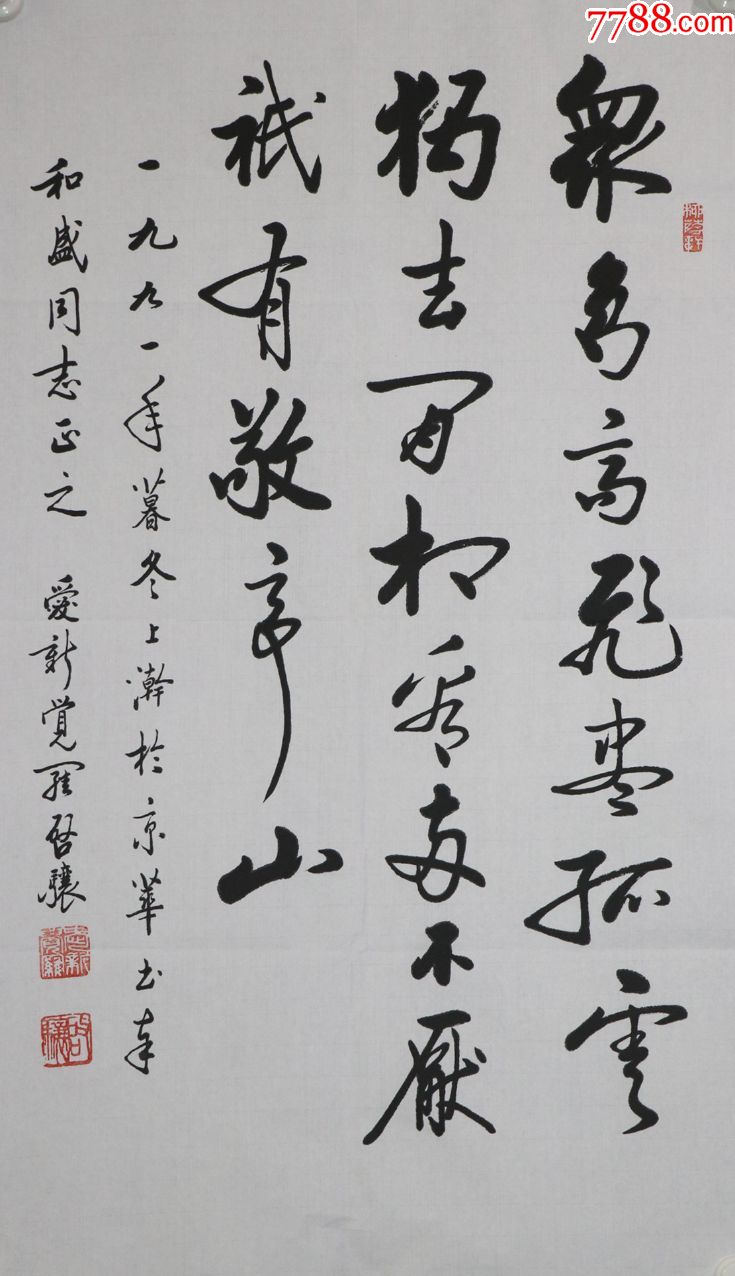 7788.com
眾鳥高飛盡孤雲
獨去閒相看兩不厭
祇有敬亭山
一九九一年暮冬上澣於京華书奉
和盛同志正之 愛新覚羅啓驤
愛新覺羅
啓驤